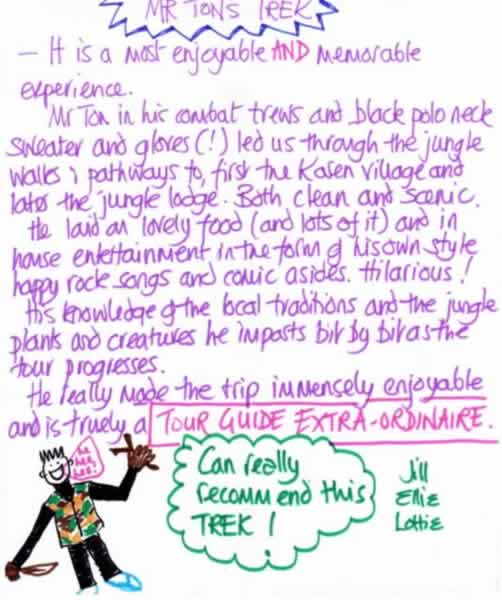 MR TONS TREK
– It is a most enjoyable AND memorable
experience.
Mr Ton in his combat trews and black polo neck
sweater and gloves (!) led us through the jungle
walks & pathways to, first the Karen Village and
later the jungle lodge. Both clean and scenic.
He laid on lovely food (and lots of it) and in
house entertainment in the form of his own style
happy rock songs and comic asides. Hilarious!
His knowledge of the local traditions and the jungle
plants and creatures he imparts bit by bit as the
tour progresses.
He really made the trip immensely enjoyable
and is truely a TOUR GUIDE EXTRA-ORDINAIRE.
he
hee,
hee!
Can really
recommend this
TREK!
Jill
Ellie
Lottie